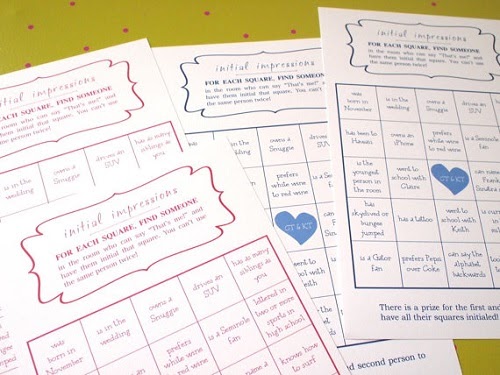 initial impressions
FOR EACH SQUARE, FIND SOMEONE
in the room who can say "That's me!" and
have them initial that square. You can't use
the same person twice!
is in the
wedding
owns a
Snuggie
drives an
SUV
has as many
siblings as
you
initial impressions
FOR EACH SQUARE, FIND SOMEONE
in the room who can say "That's me!" and
have them initial that square. You can't use
the same person twice!
was
born in
November
is in the
wedding
owns a
Snuggie
drives an
SUV
has as many
siblings as
you
prefers
white wine
to red wine
is a Seminole
fan
lettered in
two or more
sports in
high school
knows how
to surf
initial impressions
FOR EACH SQUARE, FIND SOMEONE
in the room who can say "That's me!" and
have them initial that square. You can't use
the same person twice!
is in the
wedding
owns a
Snuggie
drives an
SUV
prefers
white wine
to red wine
is a Seminole
fan
GT & KT
went to
school with
second person to
initial impressions
FOR EACH SQUARE, FIND SOMEONE
in the room who can say "That's me!" and
have them initial that square. You can't use
the same person twice!
was
born in
November
is in the
wedding
owns a
Snuggie
drives an
SUV
has been to
Hawaii
owns an
iPhone
prefers
white wine
to red wine
is a Seminole
fan
is the
youngest
person in
the room
went to
school with
Claire
GT & KT
can name
has
skydived or
bungee
jumped
has a tattoo
went to
school with
Keith
is a Gator
fan
prefers Pepsi
over Coke
can say the
alphabet
backwards
There is a prize for the first and
have all their squares initialed!